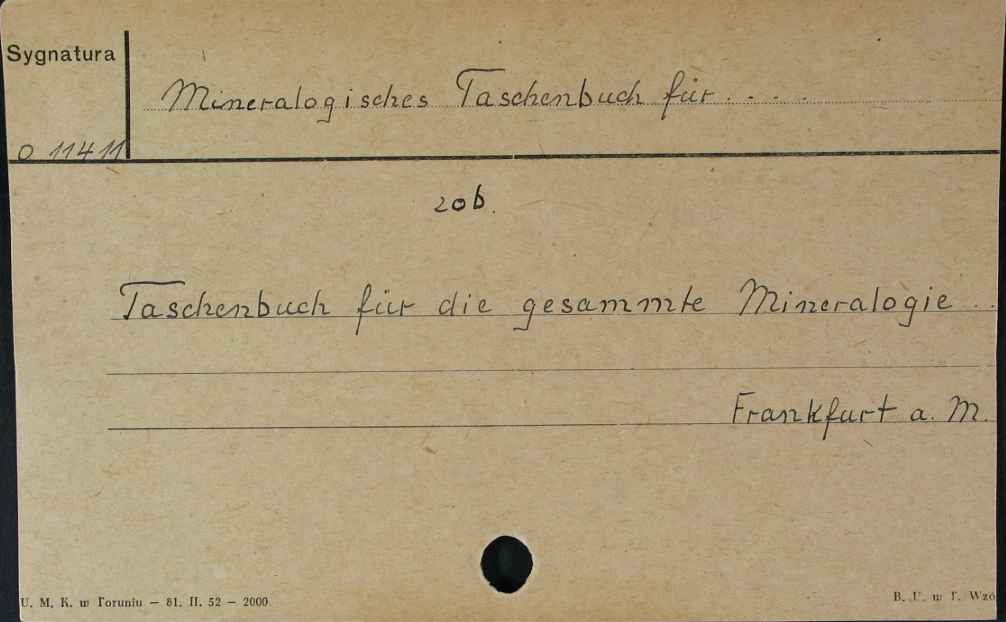 Sygnatura
Mineralogisches Taschenbuch für....
O 11411
zob.
Taschenbuch für die gesammte Mineralogie ..
Frankfurt a. M.
U. M. K. w Toruniu – 81. II. 52 – 2000
B. U. w T. Wzó